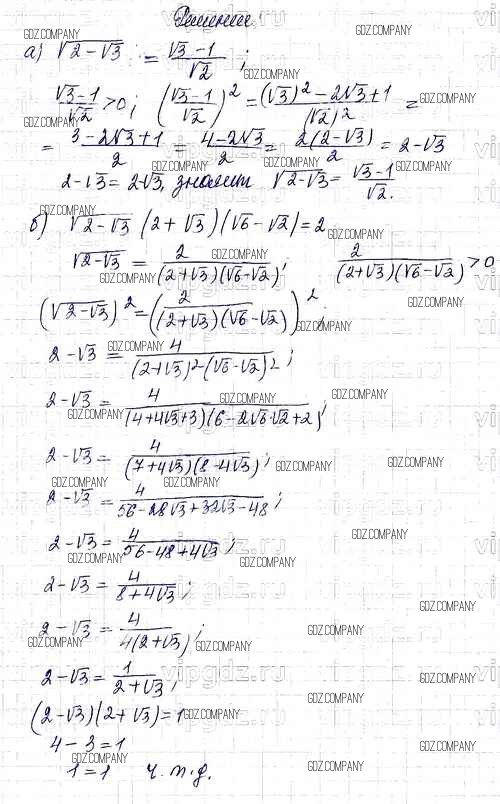 Решение
а) √(2-√3) = (√3-1)/√2 ;
(√3-1)/√2 > 0; ((√3-1)/√2)² = ((√3)²-2√3+1)/(√2)² =
= (3-2√3+1)/2 = (4-2√3)/2 = 2(2-√3)/2 = 2-√3
2-√3 = 2-√3, значит √(2-√3) = (√3-1)/√2.
б) √(2-√3) (2+√3)(√6-√2) = 2
√(2-√3) = 2/((2+√3)(√6-√2)); 2/((2+√3)(√6-√2)) > 0
(√(2-√3))² = (2/((2+√3)(√6-√2)))²
2-√3 = 4/((2+√3)²(√6-√2)²);
2-√3 = 4/((4+4√3+3)(6-2√6√2+2));
2-√3 = 4/((7+4√3)(8-4√3));
2-√3 = 4/(56-28√3+32√3-48);
2-√3 = 4/(56-48+4√3);
2-√3 = 4/(8+4√3);
2-√3 = 4/(4(2+√3));
2-√3 = 1/(2+√3);
(2-√3)(2+√3) = 1
4-3=1
1=1 ч.т.д.
GDZ.COMPANY
vipgdz.ru